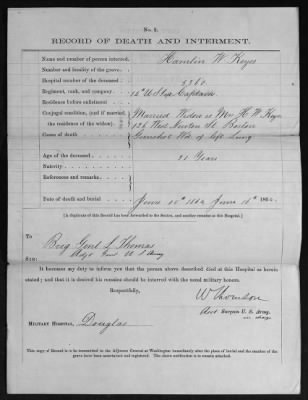 No. 2.
RECORD OF DEATH AND INTERMENT.
Name and number of person interred, Hamlin W. Keyes
Number and locality of the grave,
Hospital number of the deceased, 5360
Regiment, rank, and company, Captain
Residence before enlistment
Conjugal condition, (and if married, Married Widow is Mrs H. W. Keyes
the residence of the widow). 126 West Newton St. Boston
Cause of death Gunshot Wd. of left Lung
Age of the deceased 21 Years
Nativity,
References and remarks
Date of death and burial, June 15th 1864 June 16th 1864.
[A duplicate of this Record has been forwarded to the Sexton, and another remains at this Hospital.]
To
Brig Genl L. Thomas
Adjt Genl U S Army
SIR:
It becomes my duty to inform you that the person above described died at this Hospital as herein
stated; and that it is desired his remains should be interred with the usual military honors.
Respectfully,
W Thomson
Asst Surgeon U. S. Army.
in charge
MILITARY HOSPITAL, Douglas
This copy of Record is to be transmitted to the Adjutant General at Washington immediately after the place of burial and the number of the
grave have been ascertained and registered. The above notification is to remain attached.